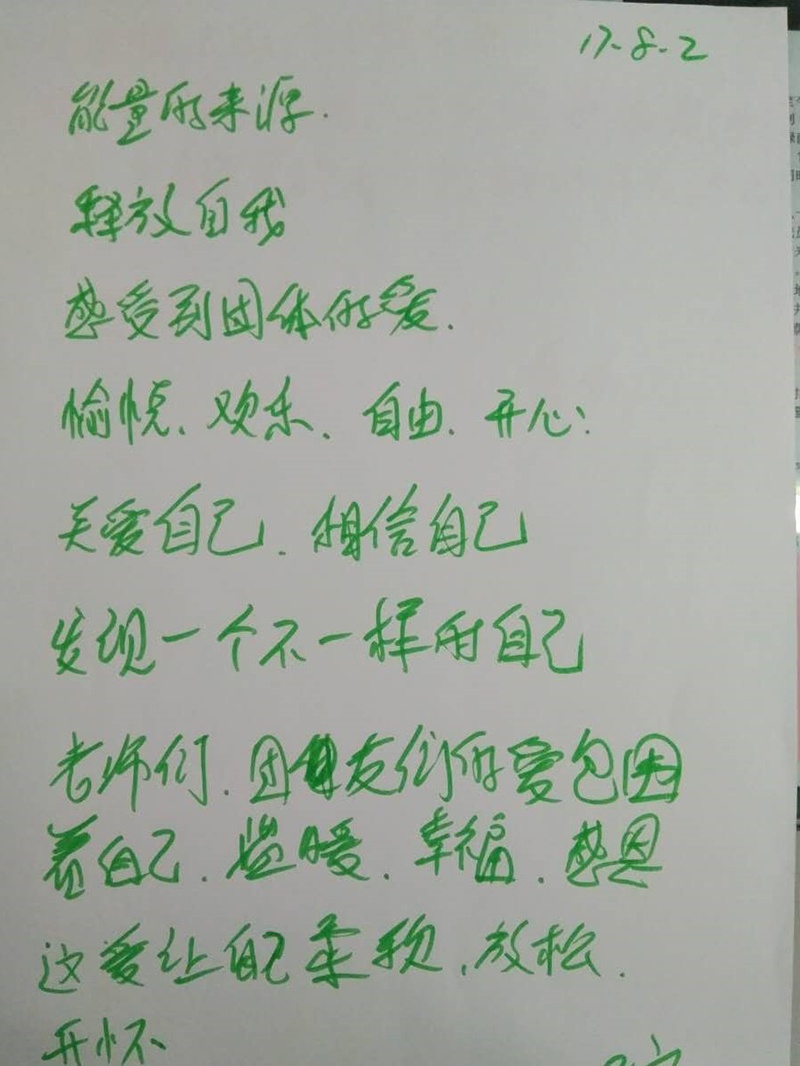 17-8-2
能量的来源.
释放自我
感受到团体的爱.
愉悦、欢乐、自由、开心:
关爱自己、相信自己
发现一个不一样的自己
老师们、团友们的爱包围
着自己、温暖、幸福、感恩
这爱让自己柔软、放松.
开怀